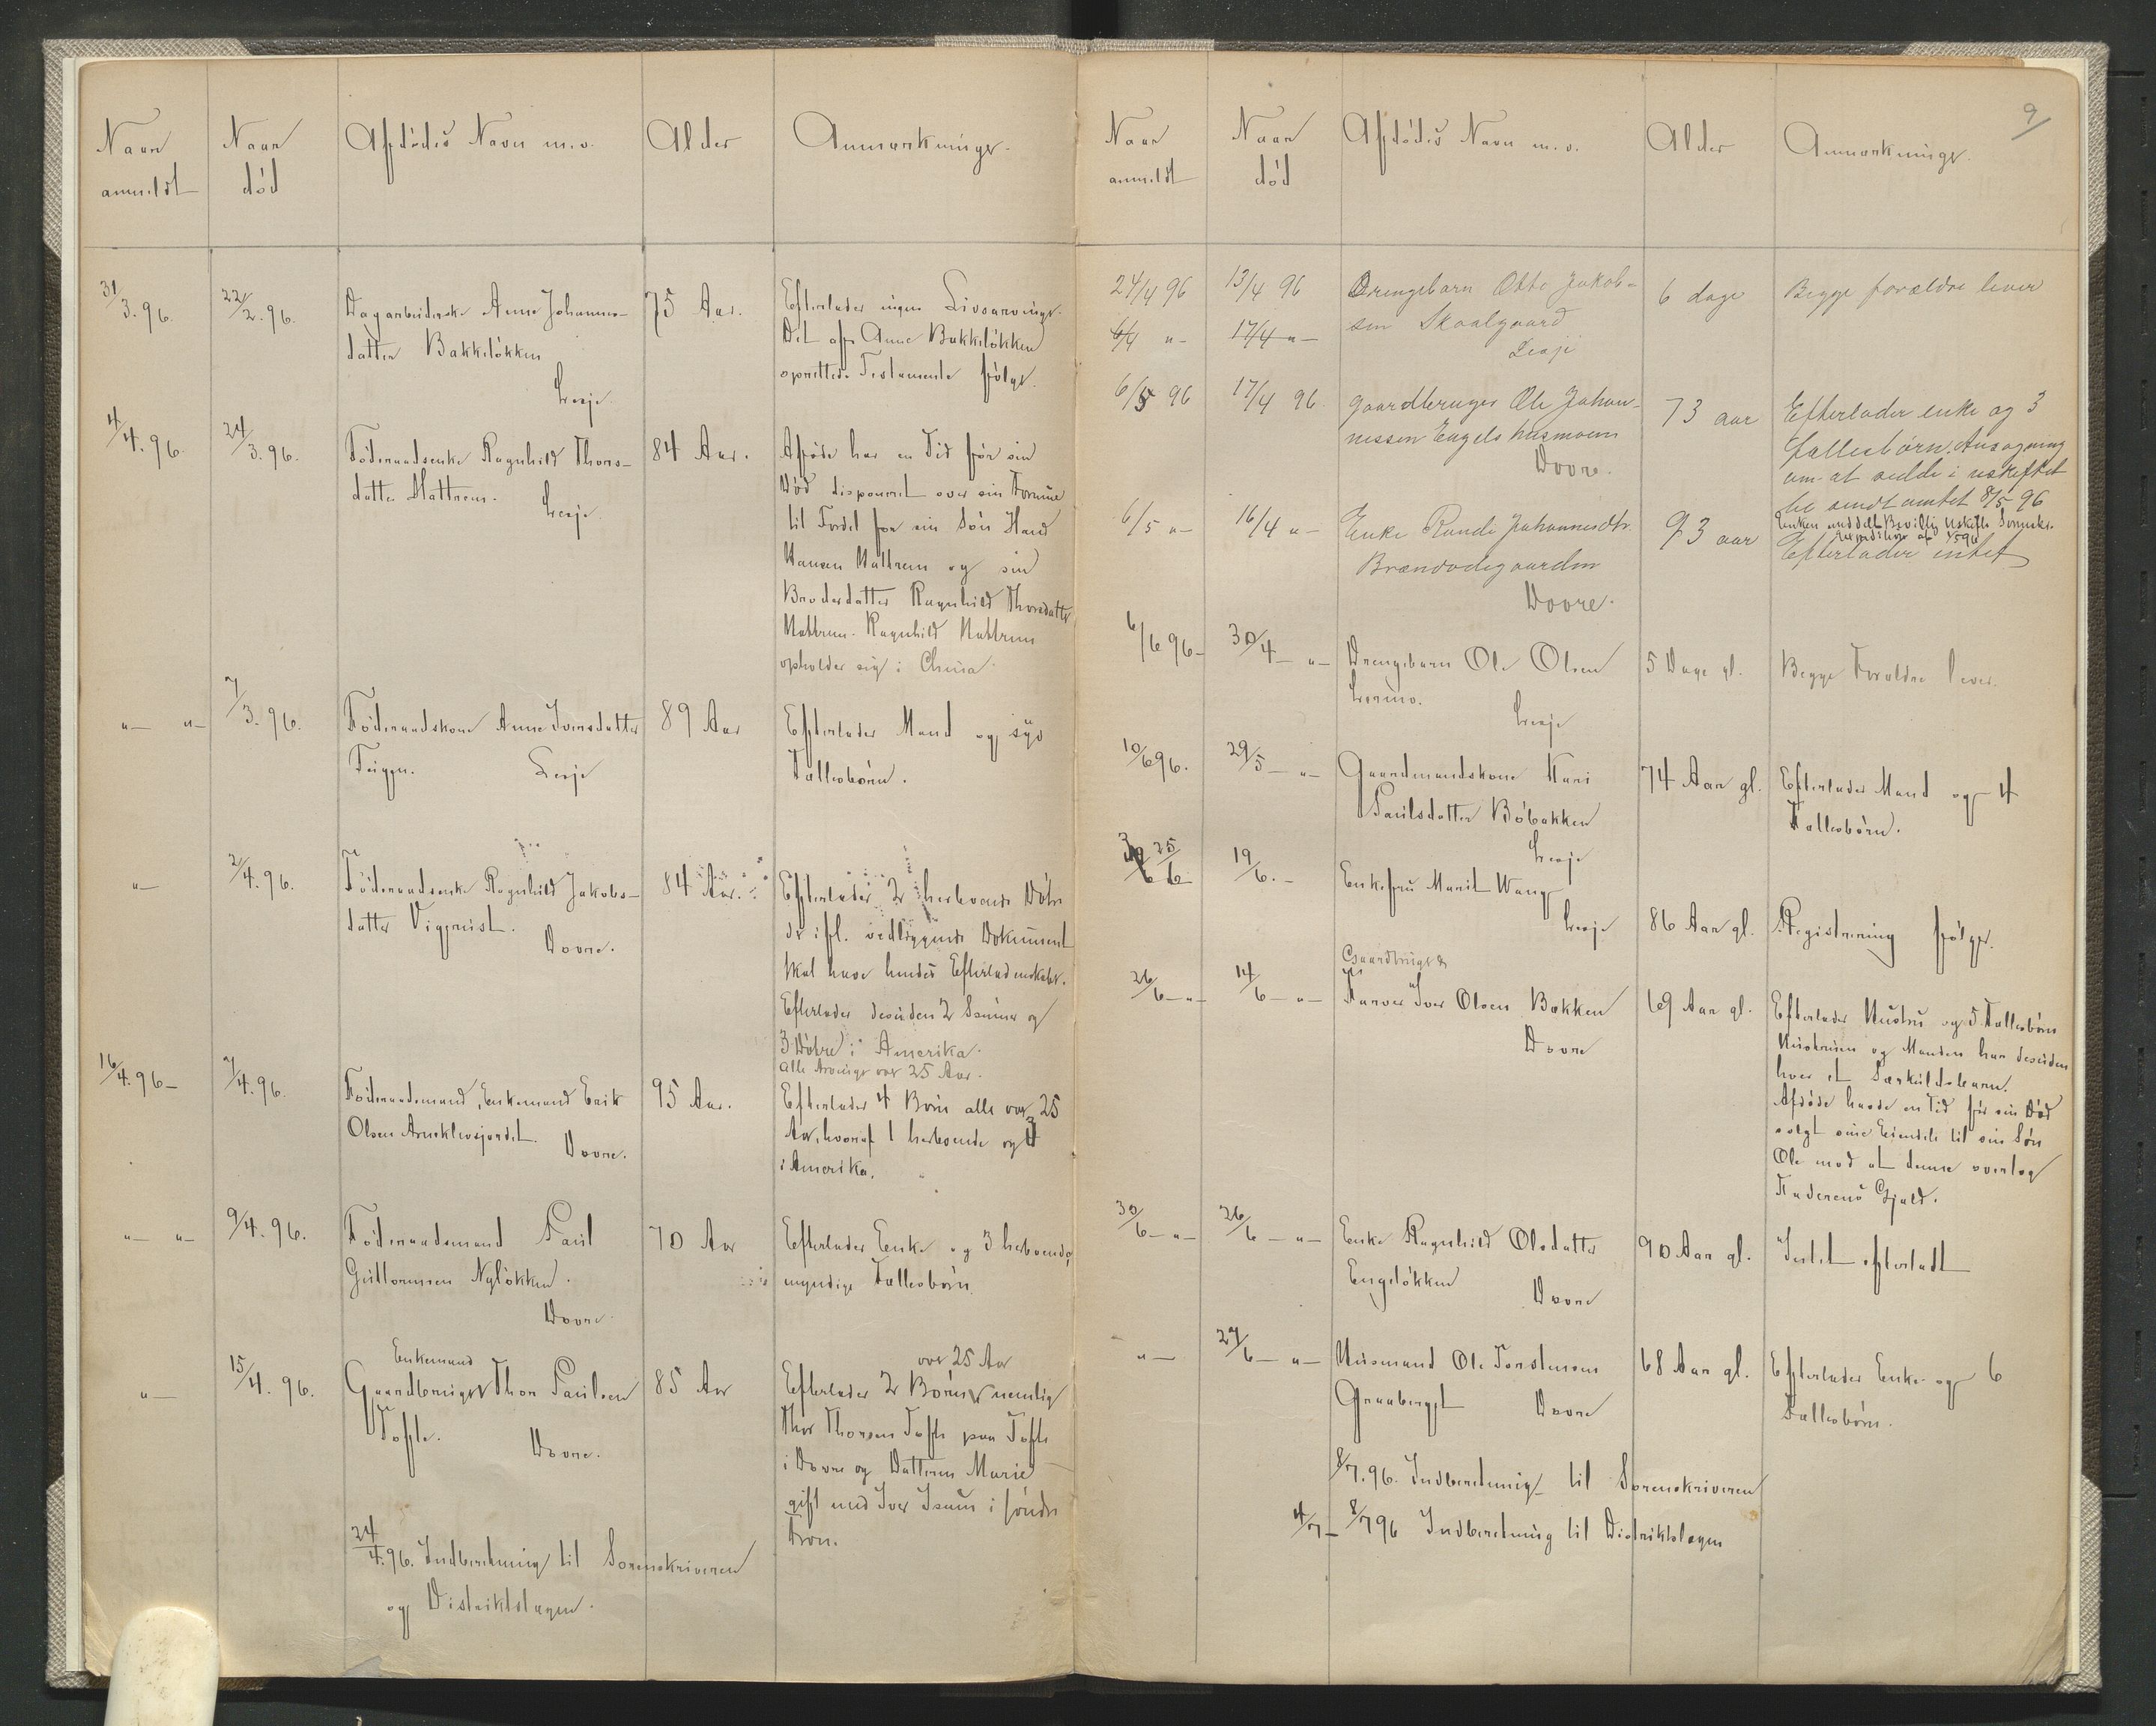 Naar anmeldt
Naar død
Afdødes Navn m.v.
Alder
Anmærkninger.
31/3.96.
22/2.96.
Dagarbeiderske Anne Johannes-
datter Bakkeløkken
Lesje.
75 Aar.
Efterlader ingen Livsarvinger.
Det af Anne Bakkeløkken
oprettede Testamente følger.
4/4.96.
24/3.96.
Føderaadsenke Ragnhild Thors-
datter Hattrem.
Lesje.
84 Aar.
Afdøde har en Tid før sin
Død disponeret over sin Formue
til Fordel for sin Søn Hans
Hansen Hattrem og sin
Broderdatter Ragnhild Thorsdatter
Hattrem. Ragnhild Hattrem
opholder sig i China.
"— "—
7/3.96.
Føderaadskone Anne Iversdatter
Teigen.
Lesje
89 Aar
Efterlader Mand og syv
Fællesbørn.
"—
2/4.96.
Føderaadsenke Ragnhild Jakobs-
datter Vigerust.
Dovre.
84 Aar.
Efterlader 2 herboende Døtre
der ifl. vedliggende Dokument
skal have hendes Efterladenskaber.
Efterlader desuden 2 Sønner og
3 Døtre i Amerika.
Alle Arvinger over 25 Aar.
16/4.96—
7/4.96.
Føderaadsmand, Enkemand Erik
Olsen Arneklevsjordet.
Dovre.
95 Aar.
Efterlader 4 Børn alle over 25
Aar, hvoraf 1 herboende og 3
i Amerika.
"— "—
9/4.96.
Føderaadsmand Paul
Guttormsen Nyløkken.
Dovre
70 Aar
Efterlader Enke og 3 herboende,
myndige Fællesbørn.
"—
15/4.96.
Enkemand
Gaardbruger Thor Paulsen
Tofte.
Dovre.
85 Aar
over 25 Aar
Efterlader 2 Børn nemlig
Thor Thorsen Tofte paa Tofte
i Dovre og Datteren Marie
gift med Iver Isum i søndre
Fron.
24/4.96. Indberetning til Sorenskriveren
og Distriktslægen.
9
Naar anmeldt
Naar død
Afdødes Navn m.v.
Alder
Anmærkninger.
24/4 96
13/4 96
Drengebarn Otto Jakob-
sen Skaalgaard
Lesje
6 dage
Begge forældre lever
6/4 "-
17/4 "-
6/5 96
17/4 96.
Gaardbruger Ole Johan-
nessen Engels husmoen
Dovre.
73 aar
Efterlader enke og 3
fællesbørn. Ansøgning
om at sidde i uskiftet
bo sendt amtet 8/5 96
Enken meddelt Bevillig Uskifte
6/5 "-
16/4 "-
Enke Rande Johannesdtr.
Brændvolegaarden
Dovre.
93 aar
Efterlader intet
6/6 96—
30/4 — "—
Drengebarn Ole Olsen
Lormo.
Lesje
5 Dage gl.
Begge Forældre lever.
10/6 96.
29/5 — "—
Gaardmandskone Kari
Paulsdatter Bøbakken
Lesje
74 Aar gl.
Efterlader Mand og 4
Fællesbørn.
25/6
19/6.—
Enkefru Marit Wang
Lesje
86 Aar gl.
Registrering følger.
26/6 — "—
14/6 — "—
Gaardbruger &
Farver Iver Olsen Bakken
Dovre
69 Aar gl.
Efterlader Hustru og 5 Fællesbørn
Hustruen og Manden har desuden
hver et Særkuldsbarn.
Afdøde havde en Tid før sin Død
solgt sine Eiendele til sin Søn
Ole mod at denne overtog
Faderens Gjæld.
30/6 — "—
26/6 — "—
Enke Ragnhild Olsdatter
Engeløkken
Dovre
90 Aar gl.
Intet efterladt
"—
27/6 — "—
Husmand Ole Torstensen
Graaberget
Dovre
68 Aar gl.
Efterlader Enke og 6
Fællesbørn.
8/7.96. Indberetning til Sorenskriveren
4/7 — 8/7 96 Indberetning til Distriktslægen